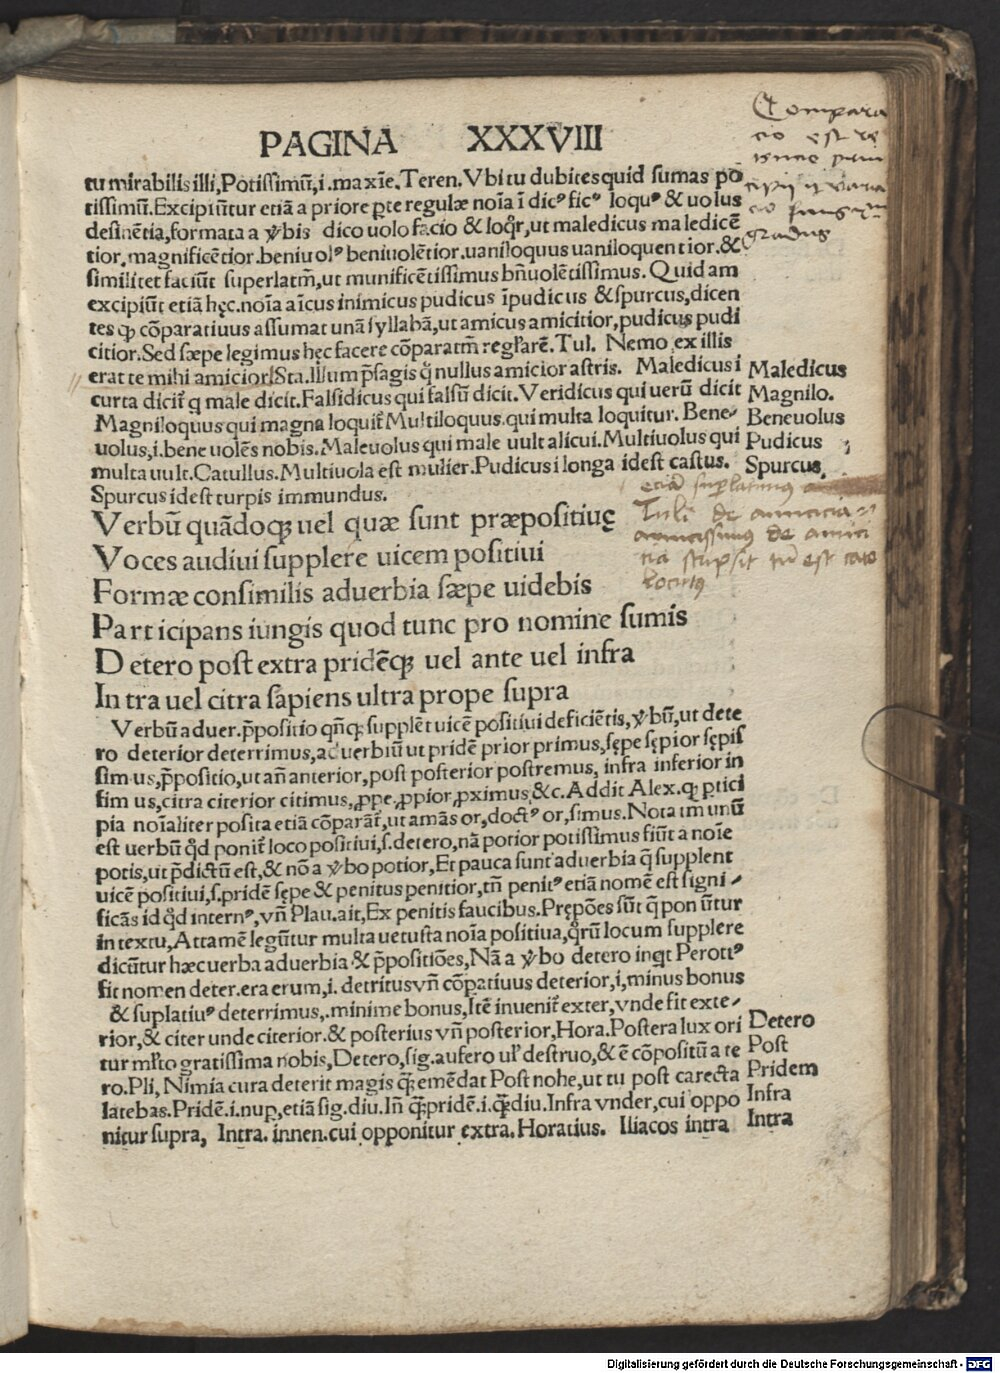 PAGINA XXXVIII
tu mirabilis illi, Potissimū, i. maxīe. Teren. Vbi tu dubites quid sumas po
tissimū. Excipiūtur etiā a priore ꝑte regulæ noīa ī dicꝰ ficꝰ loquꝰ & uolus
desinētia, formata a ꝟbis dico uolo facio & loqr̄, ut maledicus maledicē
tior, magnificētior. beniuolꝰ beniuolētior. uaniloquus uaniloquentior. &
similiter faciūt superlatm̄, ut munificētissimus bn̄uolētissimus. Quidam
excipiūt etiā hęc. noīa aīcus inimicus pudicus īpudicus & spurcus, dicen
tes ꝙ cōparatiuus assumat unā syllabā, ut amicus amicitior, pudicus pudi
citior. Sed sæpe legimus hęc facere cōparatm̄ regl'arē. Tul. Nemo ex illis
erat te mihi amicior. Sta. Illum p̄sagis q̄ nullus amicior astris. Maledicus i
curta dicit̄ q male dicit. Falsidicus qui falsū dicit. Veridicus qui uerū dicit
Magniloquus qui magna loquit̄ Multiloquus. qui multa loquitur. Bene-
uolus, i. bene uolēs nobis. Maleuolus qui male uult alicui. Multiuolus qui
multa uult. Catullus. Multiuola est mulier. Pudicus i longa idest castus.
Spurcus idest turpis immundus.
Maledicus
Magnilo.
Beneuolus
Pudicus
Spurcus
Verbū quādoqꝫ uel quæ sunt præpositiuę
Voces audiui supplere uicem positiui
Formæ consimilis aduerbia sæpe uidebis
Participans iungis quod tunc pro nomine sumis
Detero post extra pridēqꝫ uel ante uel infra
Intra uel citra sapiens ultra prope supra
Verbū aduer. p̄positio qn̄qꝫ supplēt uicē positiui deficiētis, ꝟbū, ut dete
ro deterior deterrimus, aduerbiū ut pridē prior primus, sępe sępior sępis
simus, p̄positio, ut an̄ anterior, post posterior postremus, infra inferior in
fimus, citra citerior citimus, ꝓpe, ꝓpior, ꝓximus, &c. Addit Alex. ꝙ ꝑtici
pia noīaliter posita etiā cōparāt̄, ut amās or, doctꝰ or, simus. Nota tm unū
est uerbū qd ponit̄ loco positiui, s. detero, nā potior potissimus fiūt a noīe
potis, ut p̄dictū est, & nō a ꝟbo potior, Et pauca sunt aduerbia q̄ supplent
uicē positiui, s. pridē sępe & penitus penitior, tn̄ penitꝰ etiā nomē est signi-
ficās id qd internꝰ, vn̄ Plau. ait, Ex penitis faucibus. Prępōes sūt q̄ ponūtur
in textu, Attamē legūtur multa uetusta noīa positiua, qr̄ū locum supplere
dicūtur hæc uerba aduerbia & p̄positiōes, Nā a ꝟbo detero inqt Perottꝰ
fit nomen deter. era erum, i. detritus vn̄ cōpatiuus deterior, i, minus bonus
& suplatiuꝰ deterrimus, . minime bonus, Itē inuenit̄ exter, vnde fit exte-
rior, & citer unde citerior. & posterius vn̄ posterior, Hora. Postera lux ori
tur ml'to gratissima nobis, Detero, sig. aufero ul' destruo, & ē cōpositū a te
ro. Pli, Nimia cura deterit magis q̄ꝫ emēdat Post nohe, ut tu post carecta
latebas. Pridē. i. nup, etiā sig. diu. In̄ q̄ꝫ pridē. i. q̄ꝫ diu. Infra vnder, cui oppo
nitur supra, Intra. innen. cui opponitur extra. Horatius. Iliacos intra
Detero
Post
Pridem
Infra
Intra
Digitalisierung gefördert durch die Deutsche Forschungsgemeinschaft - DFG